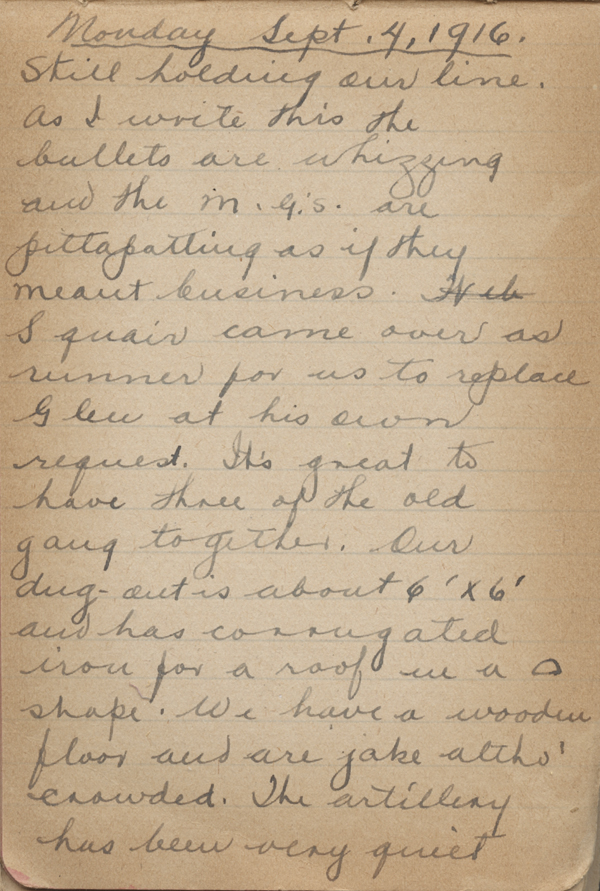 Monday Sept. 4, 1916.
Still holding our line.
As I write this the
bullets are whizzing
and the M.G.'s. are
pittapatting as if they
meant business.
Squair came over as
runner for us to replace
Glen at his own
request. It's great to
have three of the old
gang together. Our
dug-out is about 6' x 6'
and has corrugated
iron for a roof in a ⌓
shape. We have a wooden
floor and are jake altho'
crowded. The artillery
has been very quiet